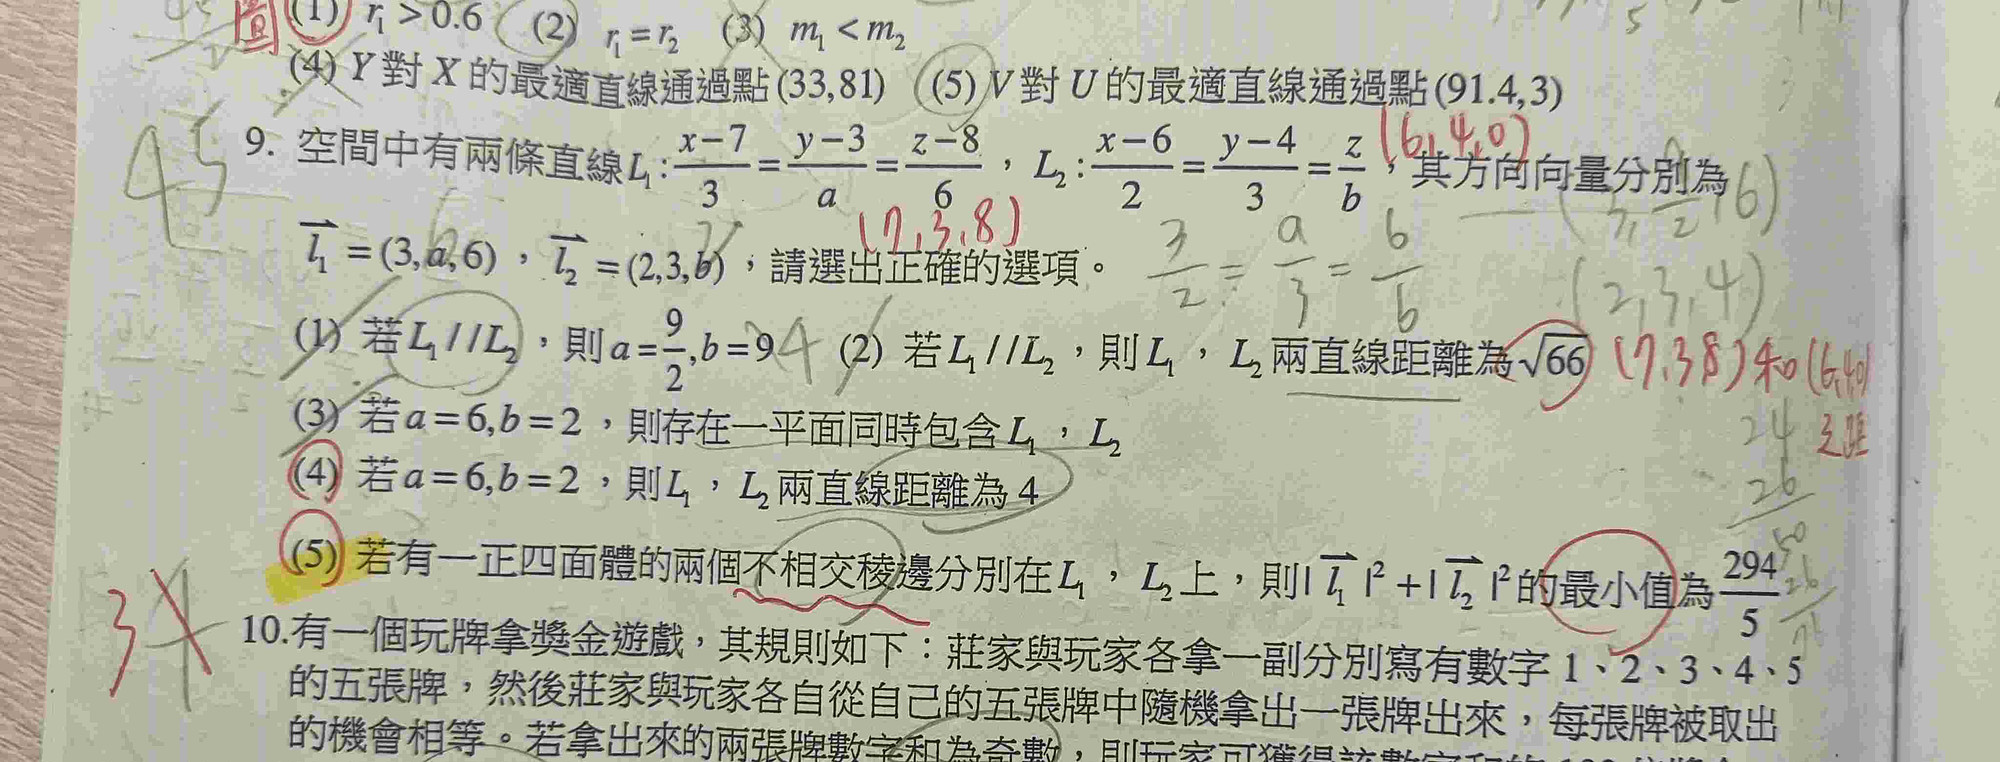 圖 (1) r₁ > 0.6 (2) r₁ = r₂ (3) m₁ < m₂
(4) Y 對 X 的最適直線通過點 (33,81) (5) V 對 U 的最適直線通過點 (91.4,3)
45
(6,4,0)
9. 空間中有兩條直線 L₁: (x−7)/3 = (y−3)/a = (z−8)/6 , L₂: (x−6)/2 = (y−4)/3 = z/b ,其方向向量分別為
(7,3,8)
l₁ = (3,a,6) , l₂ = (2,3,b) ,請選出正確的選項。 3/2 = a/3 = 6/b
(2,3,4)
(1) 若 L₁//L₂ ,則 a = 9/2, b = 9 4 (2) 若 L₁//L₂ ,則 L₁ , L₂ 兩直線距離為 √66 (7,3,8) 和 (6,4,0)
之距
(3) 若 a = 6, b = 2 ,則存在一平面同時包含 L₁ , L₂
24
(4) 若 a = 6, b = 2 ,則 L₁ , L₂ 兩直線距離為 4
26
(5) 若有一正四面體的兩個不相交稜邊分別在 L₁ , L₂ 上,則 |l₁|² + |l₂|² 的最小值為 294/5
50
26
10.有一個玩牌拿獎金遊戲,其規則如下:莊家與玩家各拿一副分別寫有數字 1、2、3、4、5
的五張牌,然後莊家與玩家各自從自己的五張牌中隨機拿出一張牌出來,每張牌被取出
的機會相等。若拿出來的兩張牌數字和為奇數,則玩家可獲得該數字和的 100 倍獎金